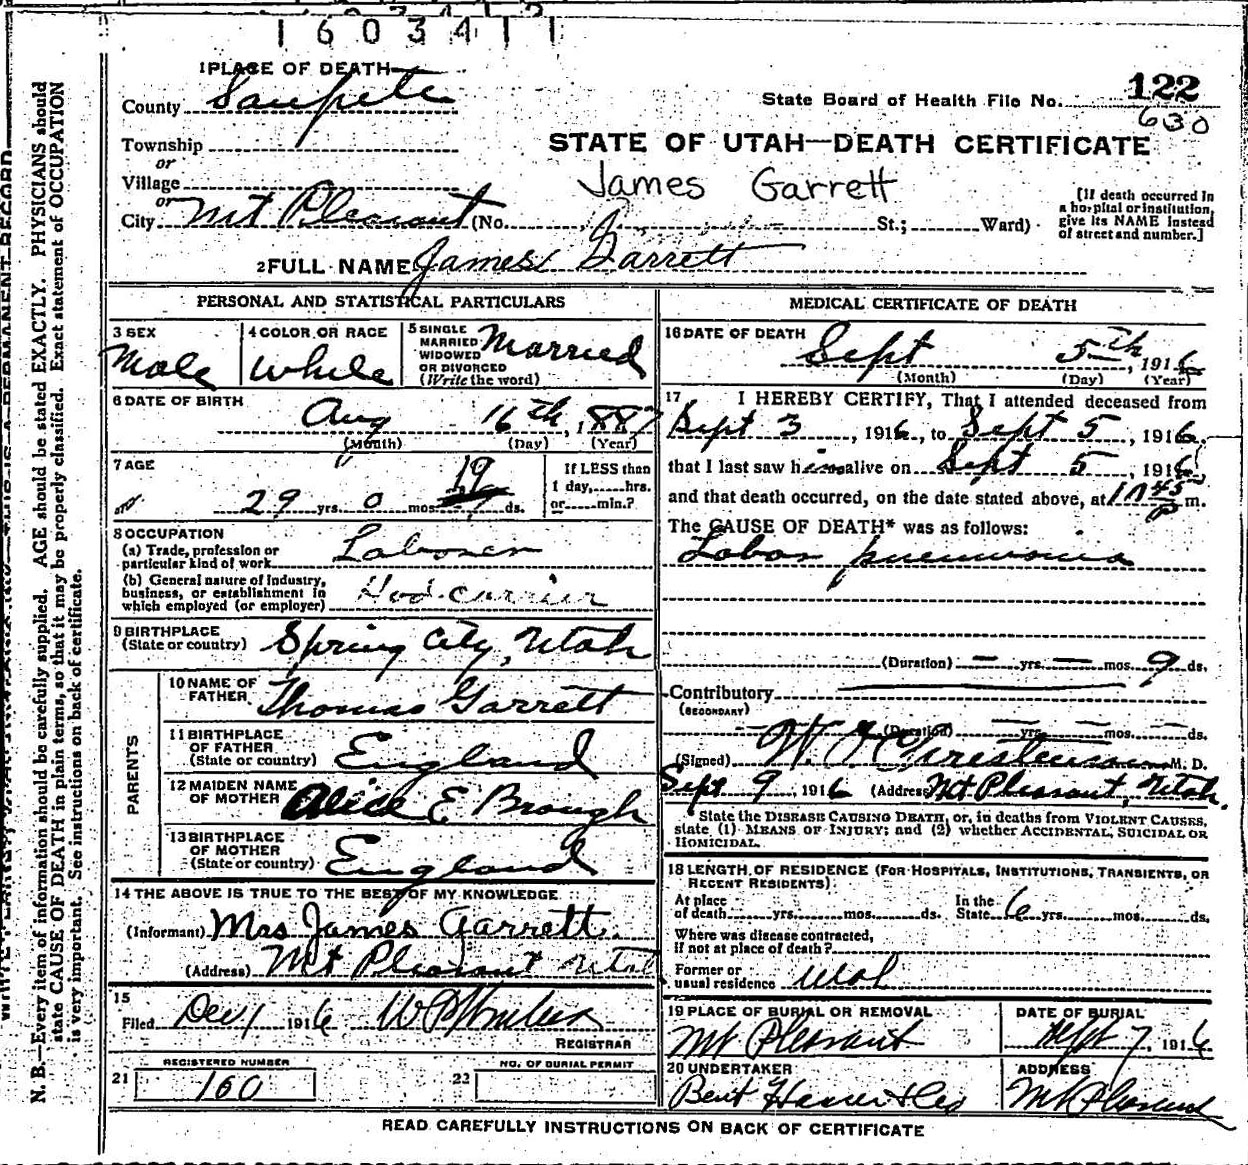 1603411
1 PLACE OF DEATH
County Sanpete
State Board of Health File No. 122
630
Township
or
Village
or
City Mt Pleasant (No. St.; Ward)
STATE OF UTAH—DEATH CERTIFICATE
James Garrett
[If death occurred in
a hospital or institution,
give its NAME instead
of street and number.]
2 FULL NAME James Garrett
PERSONAL AND STATISTICAL PARTICULARS
3 SEX
Male
4 COLOR OR RACE
White
5 SINGLE
MARRIED
WIDOWED
OR DIVORCED
(Write the word)
Married
6 DATE OF BIRTH
Aug 16th, 1887
(Month) (Day) (Year)
7 AGE
29 yrs. 0 mos. 19 ds.
If LESS than
1 day, hrs.
or min.?
8 OCCUPATION
(a) Trade, profession or
particular kind of work Laborer
(b) General nature of industry,
business, or establishment in
which employed (or employer) Hod-carrier
9 BIRTHPLACE
(State or country) Spring City, Utah
PARENTS
10 NAME OF
FATHER Thomas Garrett
11 BIRTHPLACE
OF FATHER
(State or country) England
12 MAIDEN NAME
OF MOTHER Alice E Brough
13 BIRTHPLACE
OF MOTHER
(State or country) England
14 THE ABOVE IS TRUE TO THE BEST OF MY KNOWLEDGE
(Informant) Mrs James Garrett
(Address) Mt Pleasant Utah
15
Filed Dec 1 1916
REGISTRAR
REGISTERED NUMBER
21 160
NO. OF BURIAL PERMIT
22
MEDICAL CERTIFICATE OF DEATH
16 DATE OF DEATH
Sept 5th, 1916
(Month) (Day) (Year)
17 I HEREBY CERTIFY, That I attended deceased from
Sept 3, 1916, to Sept 5, 1916,
that I last saw him alive on Sept 5, 1916,
and that death occurred, on the date stated above, at m.
The CAUSE OF DEATH* was as follows:
Lobar pneumonia
(Duration) — yrs. — mos. 9 ds.
Contributory
(SECONDARY)
(Duration) yrs. mos. ds.
(Signed) M. D.
Sept 9, 1916 (Address) Mt Pleasant, Utah.
State the DISEASE CAUSING DEATH, or, in deaths from VIOLENT CAUSES,
state (1) MEANS OF INJURY; and (2) whether ACCIDENTAL, SUICIDAL OR
HOMICIDAL.
18 LENGTH OF RESIDENCE (FOR HOSPITALS, INSTITUTIONS, TRANSIENTS, OR
RECENT RESIDENTS)
At place
of death yrs. mos. ds.
In the
State 6 yrs. mos. ds.
Where was disease contracted,
if not at place of death?
Former or
usual residence
19 PLACE OF BURIAL OR REMOVAL
Mt Pleasant
DATE OF BURIAL
Sept 7, 1916
20 UNDERTAKER
ADDRESS
Mt Pleasant
READ CAREFULLY INSTRUCTIONS ON BACK OF CERTIFICATE
N. B.—Every item of information should be carefully supplied. AGE should be stated EXACTLY. PHYSICIANS should
state CAUSE OF DEATH in plain terms, so that it may be properly classified. Exact statement of OCCUPATION
is very important. See instructions on back of certificate.